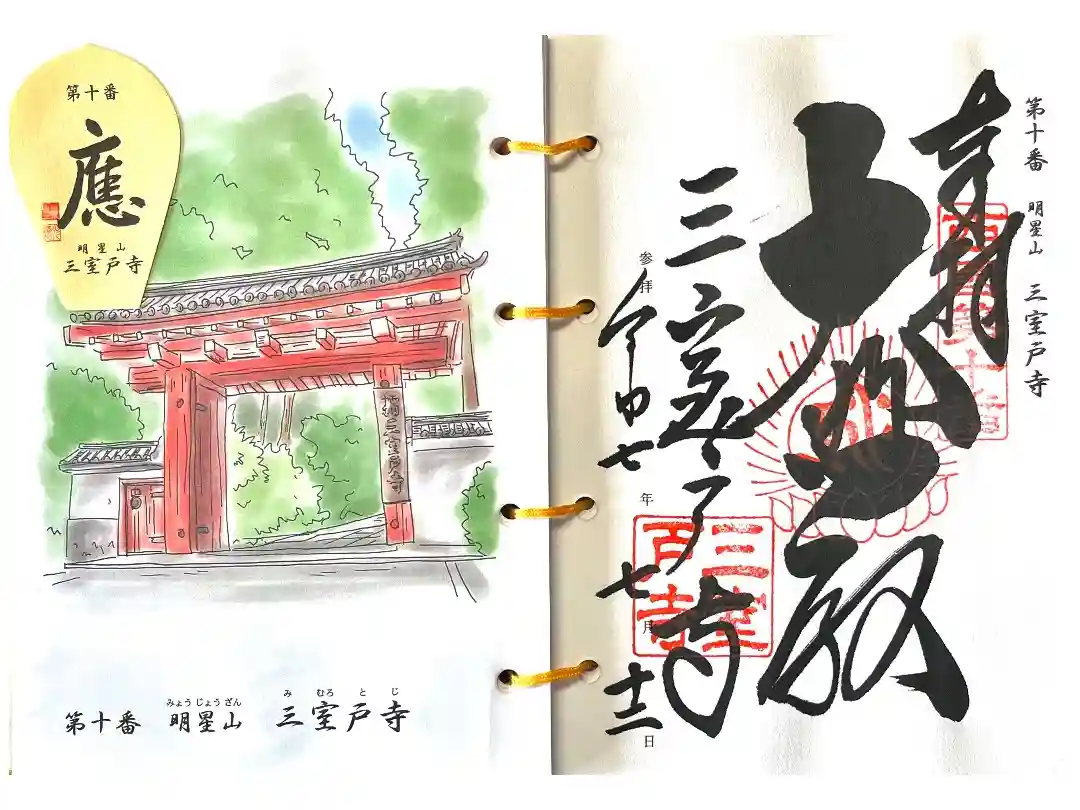 第十番
應
明星山
三室戸寺
三室戸寺
みょうじょうざん み むろ と じ
第十番 明星山 三室戸寺
第十番 明星山 三室戸寺
奉拝
西国第十番
大悲殿
三室戸寺
三室戸寺
参拝 令和七年七月十二日